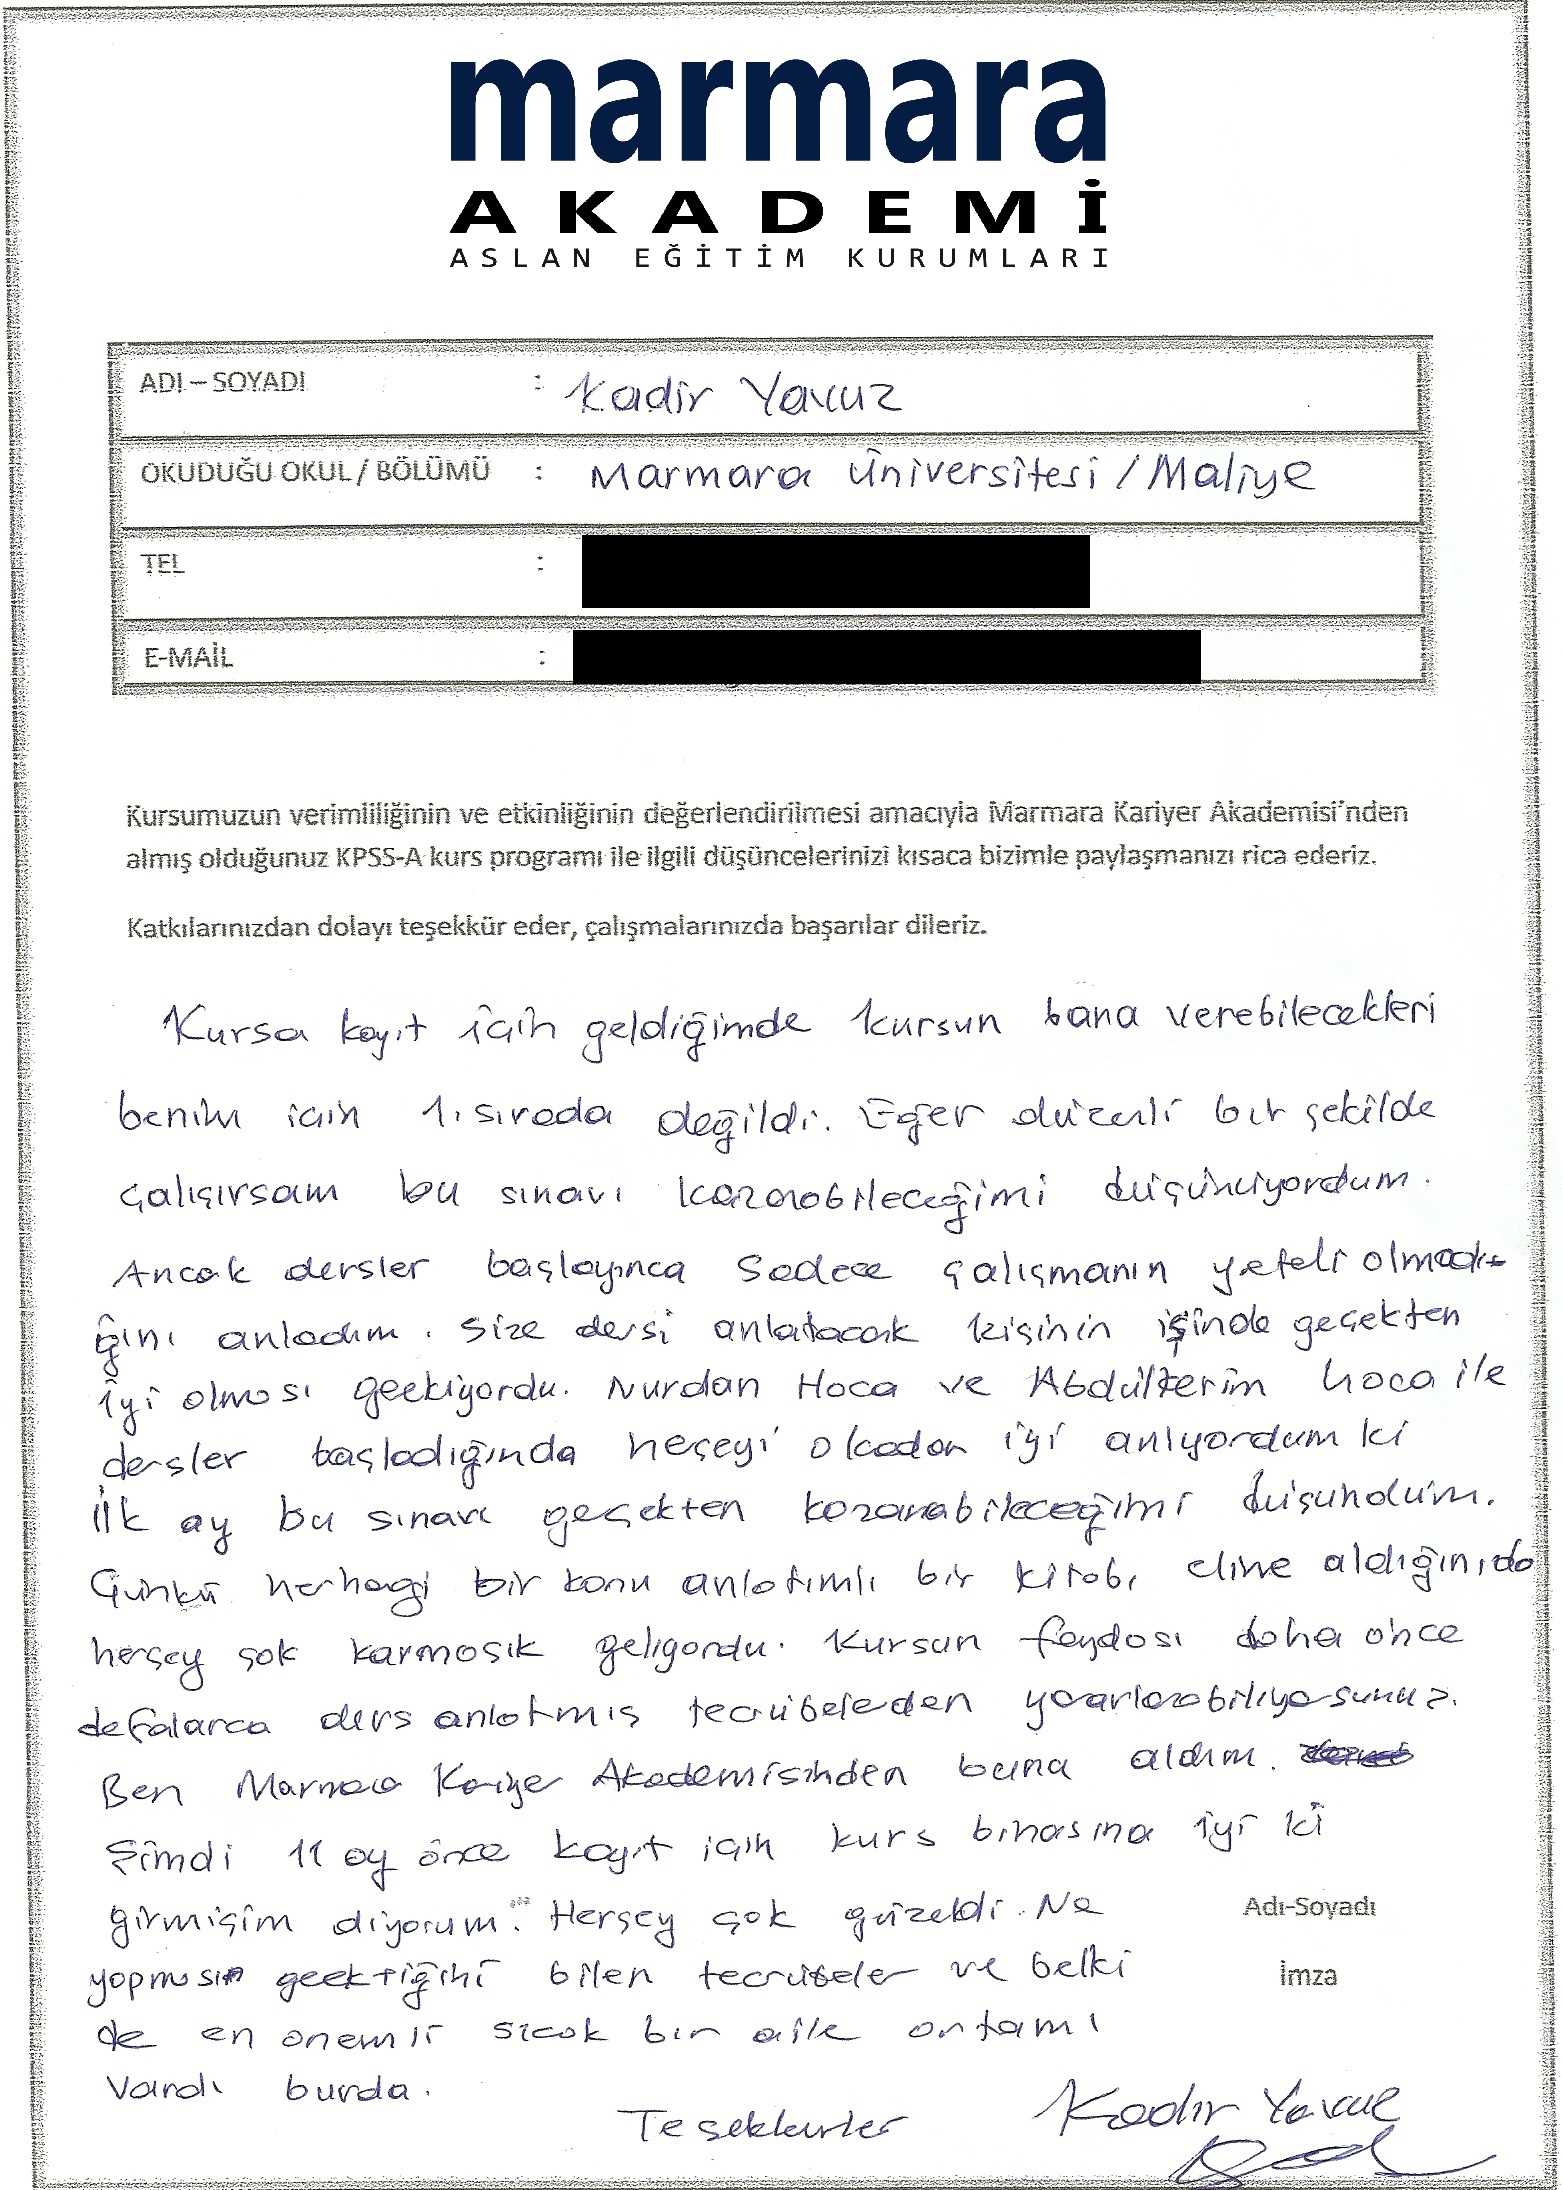 marmara
AKADEMİ
ASLAN EĞİTİM KURUMLARI
ADI – SOYADI : Kadir Yavuz
OKUDUĞU OKUL / BÖLÜMÜ : Marmara Üniversitesi / Maliye
TEL :
E-MAİL :
Kursumuzun verimliliğinin ve etkinliğinin değerlendirilmesi amacıyla Marmara Kariyer Akademisi'nden
almış olduğunuz KPSS-A kurs programı ile ilgili düşüncelerinizi kısaca bizimle paylaşmanızı rica ederiz.
Katkılarınızdan dolayı teşekkür eder, çalışmalarınızda başarılar dileriz.
Kursa kayıt için geldiğimde kursun bana verebilecekleri
benim için 1. sırada değildi. Eğer düzenli bir şekilde
çalışırsam bu sınavı kazanabileceğimi düşünüyordum.
Ancak dersler başlayınca sadece çalışmanın yeteli olmadı-
ğını anladım. Size dersi anlatacak kişinin işinde geçekten
iyi olması geekiyordu. Nurdan Hoca ve Abdülkerim hoca ile
dersler başladığında heşeyi okadar iyi anlıyordum ki
ilk ay bu sınavı geçekten kazanabileceğimi düşündüm.
Günkü herhagi bir konu anlatımlı bir kitabı eline aldığınıda
herşey çok karmaşık geliyordu. Kursun faydası daha önce
defalarca ders anlatmış tecrübeleden yararlanabiliyosunuz.
Ben Marmaa Kariyer Akademisinden bunu aldım.
Şimdi 11 ay önce kayıt için kurs binasına iyi ki
girmişim diyorum. Herşey çok güzeldi. Ne
yapması geektiğini bilen tecrübeler ve belki
de en önemli sıcak bir aile ortamı
vardı burda.
Adı-Soyadı
İmza
Teşekkürler
Kadir Yavuz